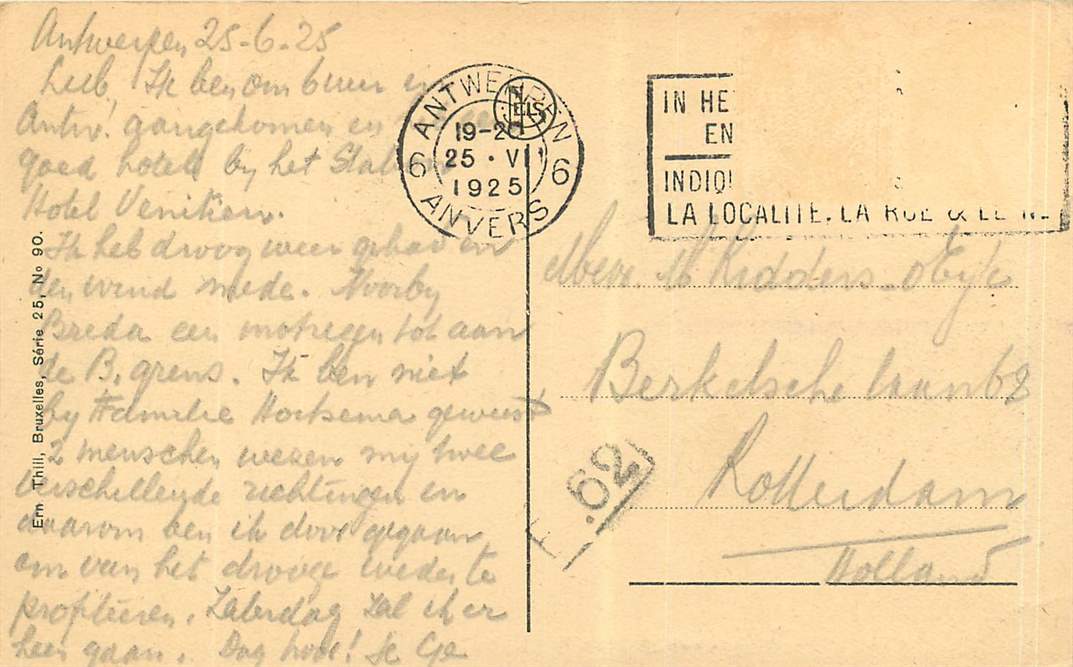 Antwerpen 25-6-25
Lieb, Ik ben om 6 uur in
Antw. aangekomen en
goed hotel bij het Station
Hotel Venitien.
Ik heb droog weer gehad en
den wind mede. Voorby
Breda een motregen tot aan
de B. grens. Ik ben niet
by Familie Hoeksema geweest
2 menschen wezen my twee
verschillende richtingen en
daarom ben ik door gegaan
om van het drooge weder te
profiteeren. Zaterdag zal ik er
heen gaan. Dag hoor! Je Ge
Ern. Thill, Bruxelles, Série 25, No 90.
ANTWERPEN
NELS
19-20
25 · VI
1925
6 6
ANVERS
IN HE
EN
INDIQ
LA LOCALITE. LA RUE & LE N
Mevr. M Ridders
Berkelsche laan 62
Rotterdam
Holland
F. 62